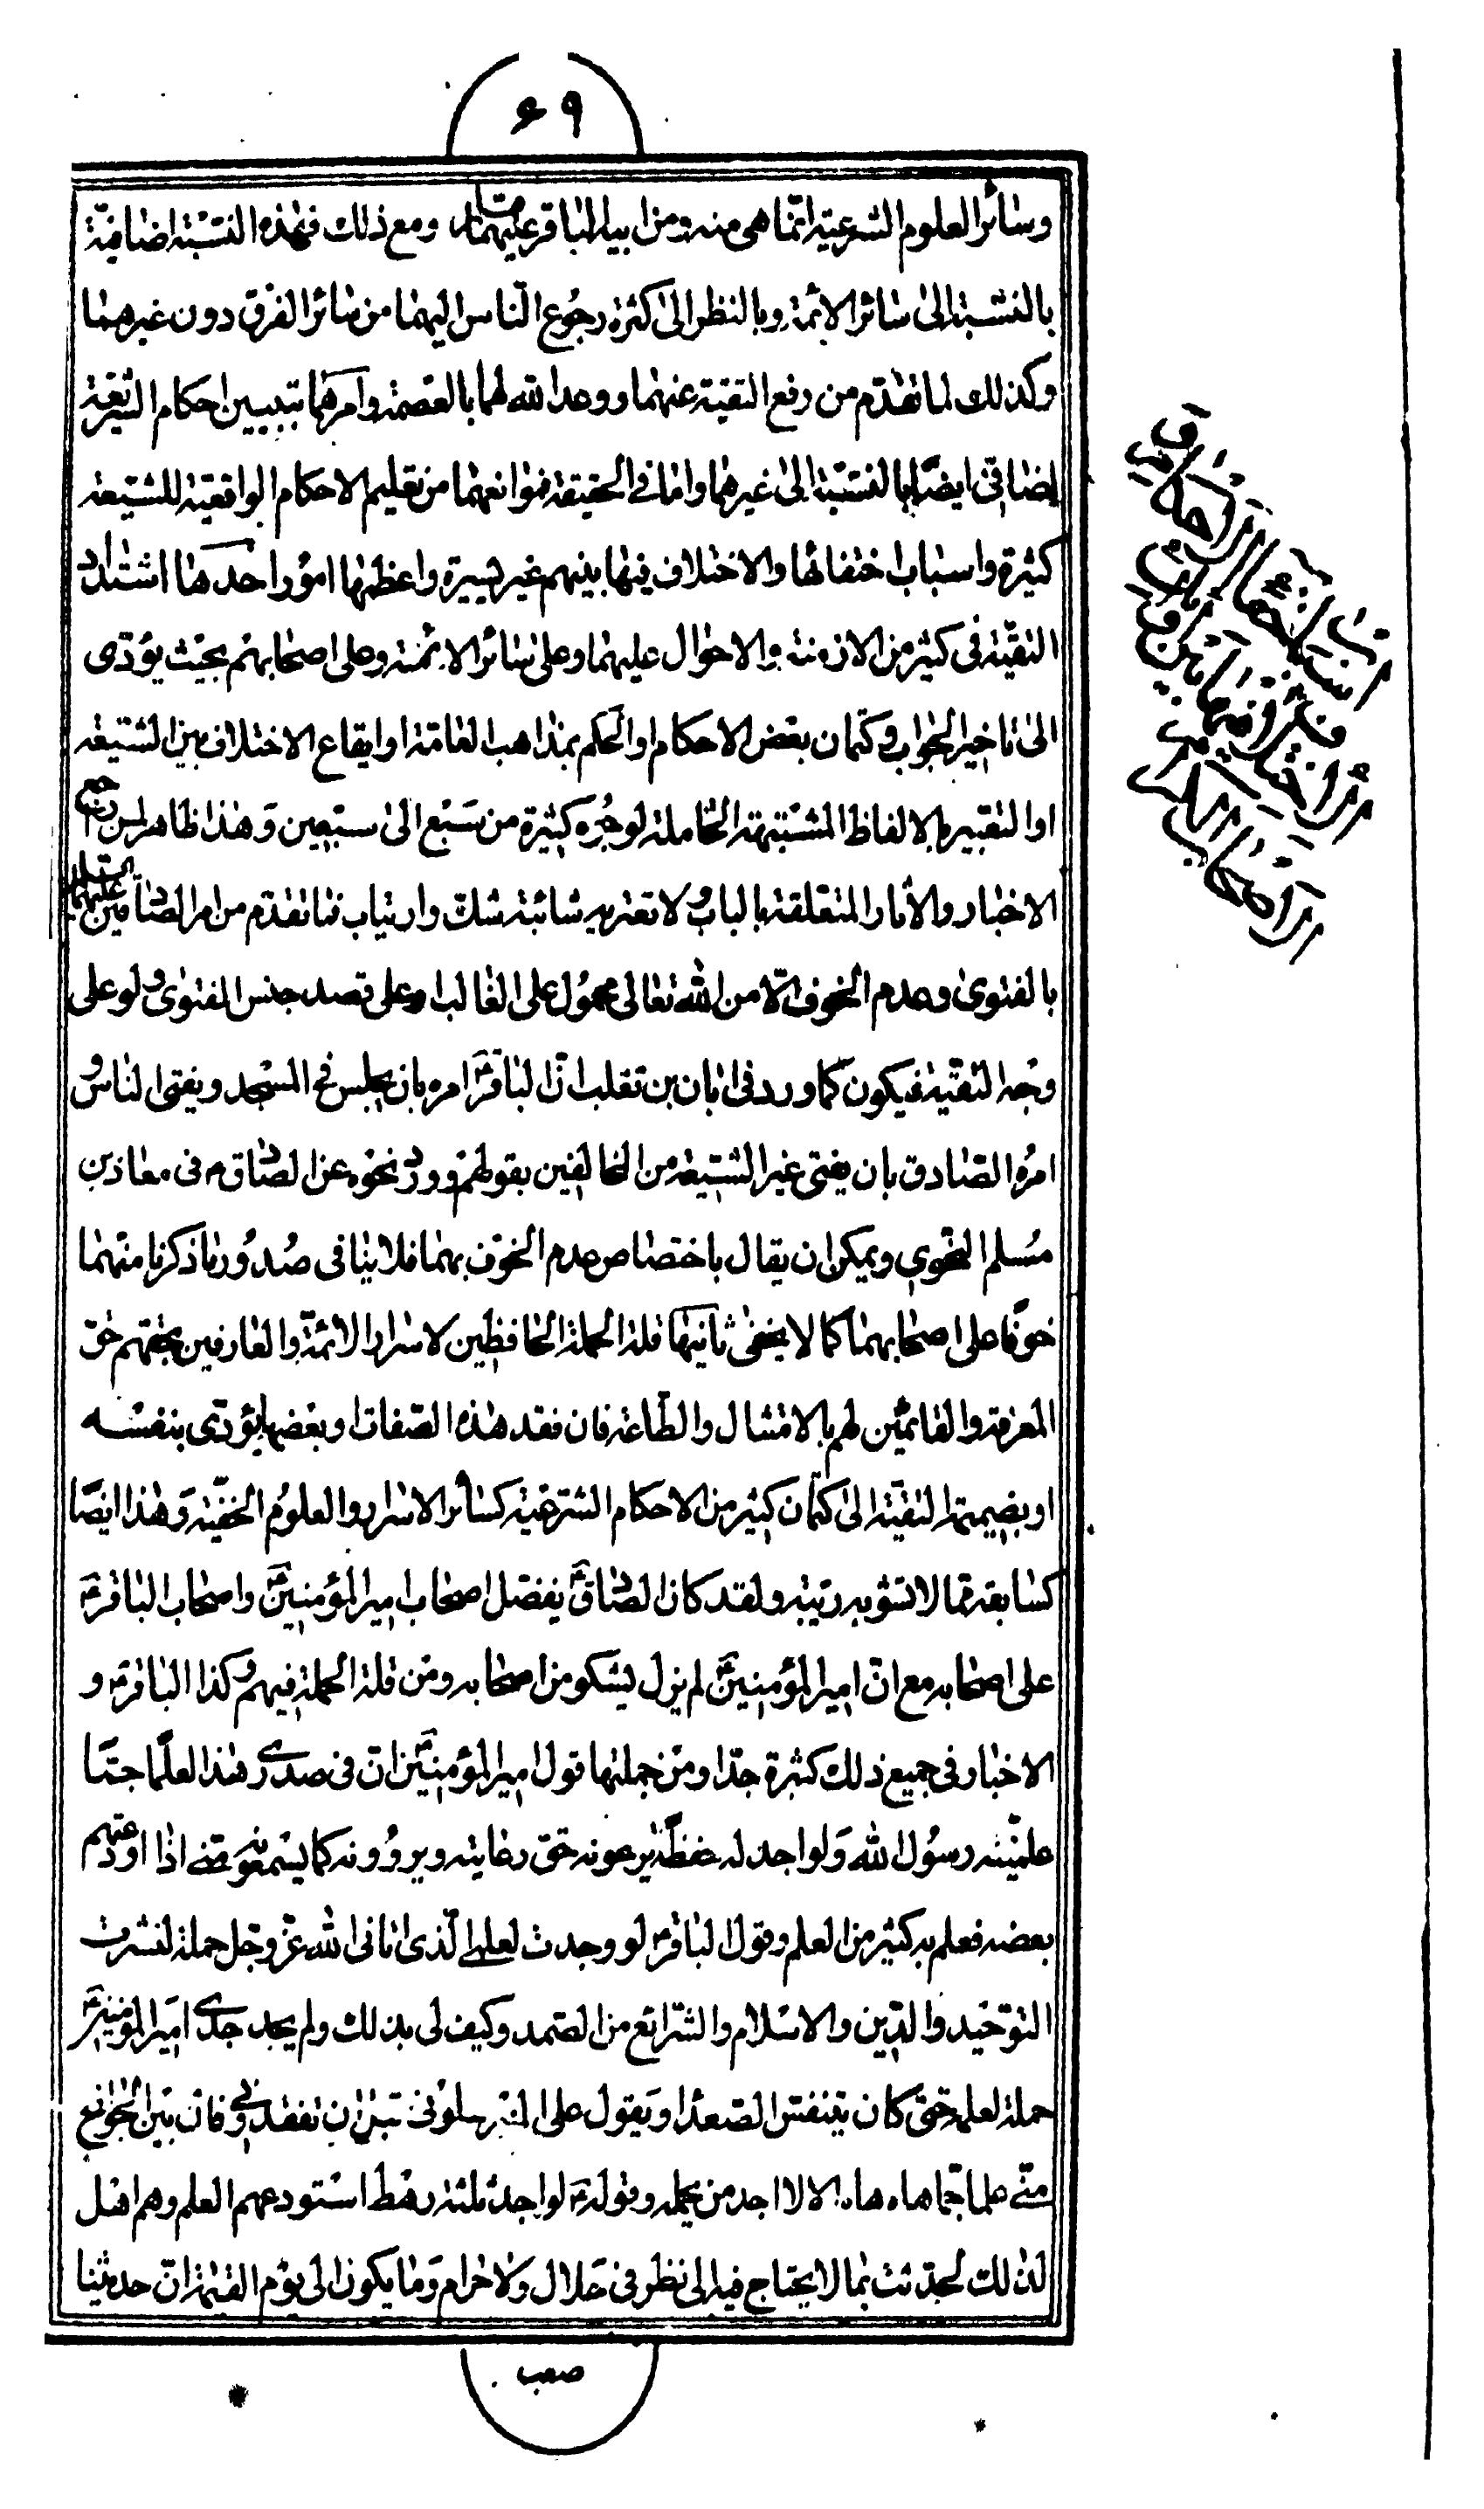 ۶۹
وسائر العلوم الشرعية انما هى منه ومن ابيه الباقر عليهما السلام ومع ذلك فهذه النسبة اضافية
بالنسبة الى سائر الائمة وبالنظر الى كثرة رجوع الناس اليهما من سائر الفرق دون غيرهما
وكذلك لما تقدم من رفع التقية عنهما ووعد الله لهما بالعصمة وامرهما بتبيين احكام الشريعة
اضافى ايضا بالنسبة الى غيرهما واما فى الحقيقة فموانعهما من تعليم الاحكام الواقعية للشيعة
كثيرة واسباب اختفائها والاختلاف فيها بينهم غير يسيرة واعظمها امور احدها اشتداد
التقية فى كثير من الازمنة والاحوال عليهما وعلى سائر الائمة وعلى اصحابهم بحيث يؤدى
الى تاخير الجواب وكتمان بعض الاحكام او الحكم بمذاهب العامة او ايقاع الاختلاف بين الشيعة
او التعبير بالالفاظ المشتبهة الحاملة لوجوه كثيرة من سبع الى سبعين وهذا ظاهر لمن راجع
الاخبار والآثار المتعلقة بالباب ولا تعتريه شائبة شك وارتياب فما تقدم من امر الصادقين عليهما السلام
بالفتوى وعدم الخوف الا من الله تعالى محمول على الغالب او على قصد جنس الفتوى ولو على
وجه التقية فيكون كما ورد فى ابان بن تغلب ان الباقر ع امره بان يجلس فى المسجد ويفتى الناس و
امره الصادق بان يفتى غير الشيعة من المخالفين بقولهم وورد نحوه عن الصادق ع فى معاذ بن
مسلم النحوى ويمكن ان يقال باختصاص عدم الخوف بهما فلا ينافى صدور ما ذكرنا منهما
خوفا على اصحابهما كما لا يخفى ثانيها قلة الحملة الحافظين لاسرار الائمة والعارفين بحقهم حق
المعرفة والقائمين لهم بالامتثال والطاعة فان فقد هذه الصفات او بعضها يؤدى بنفسه
او بضميمة التقية الى كتمان كثير من الاحكام الشرعية كسائر الاسرار والعلوم الخفية وهذا ايضا
كسابقه مما لا تشوبه ريبة ولقد كان الصادق ع يفضل اصحاب امير المؤمنين ع واصحاب الباقر ع
على اصحابه مع ان امير المؤمنين ع لم يزل يشكو من اصحابه ومن قلة الحملة فيهم وكذا الباقر ع و
الاخبار فى جميع ذلك كثيرة جدا ومن جملتها قول امير المؤمنين ع ان فى صدرى هذا لعلما جما
علمنيه رسول الله ولو اجد له حفظة يرعونه حق رعايته ويروونه كما يسمعونه منى اذا اودعتهم
بعضه فعلم به كثير من العلم وقول الباقر ع لو وجدت لعلمى الذى اتانى الله عز وجل حملة لنشرت
التوحيد والدين والاسلام والشرائع من الصمد وكيف لى بذلك ولم يجد جدى امير المؤمنين ع
حملة لعلمه حتى كان يتنفس الصعداء ويقول على المنبر سلونى قبل ان تفقدونى فان بين الجوانح
منى علما جما هاه هاه الا لا اجد من يحمله وقوله ع لو اجد ثلثة رهط استودعهم العلم وهم اهل
لذلك لحدثت بما لا يحتاج فيه الى نظر فى حلال ولا حرام وما يكون الى يوم القيمة ان حديثنا
صعب